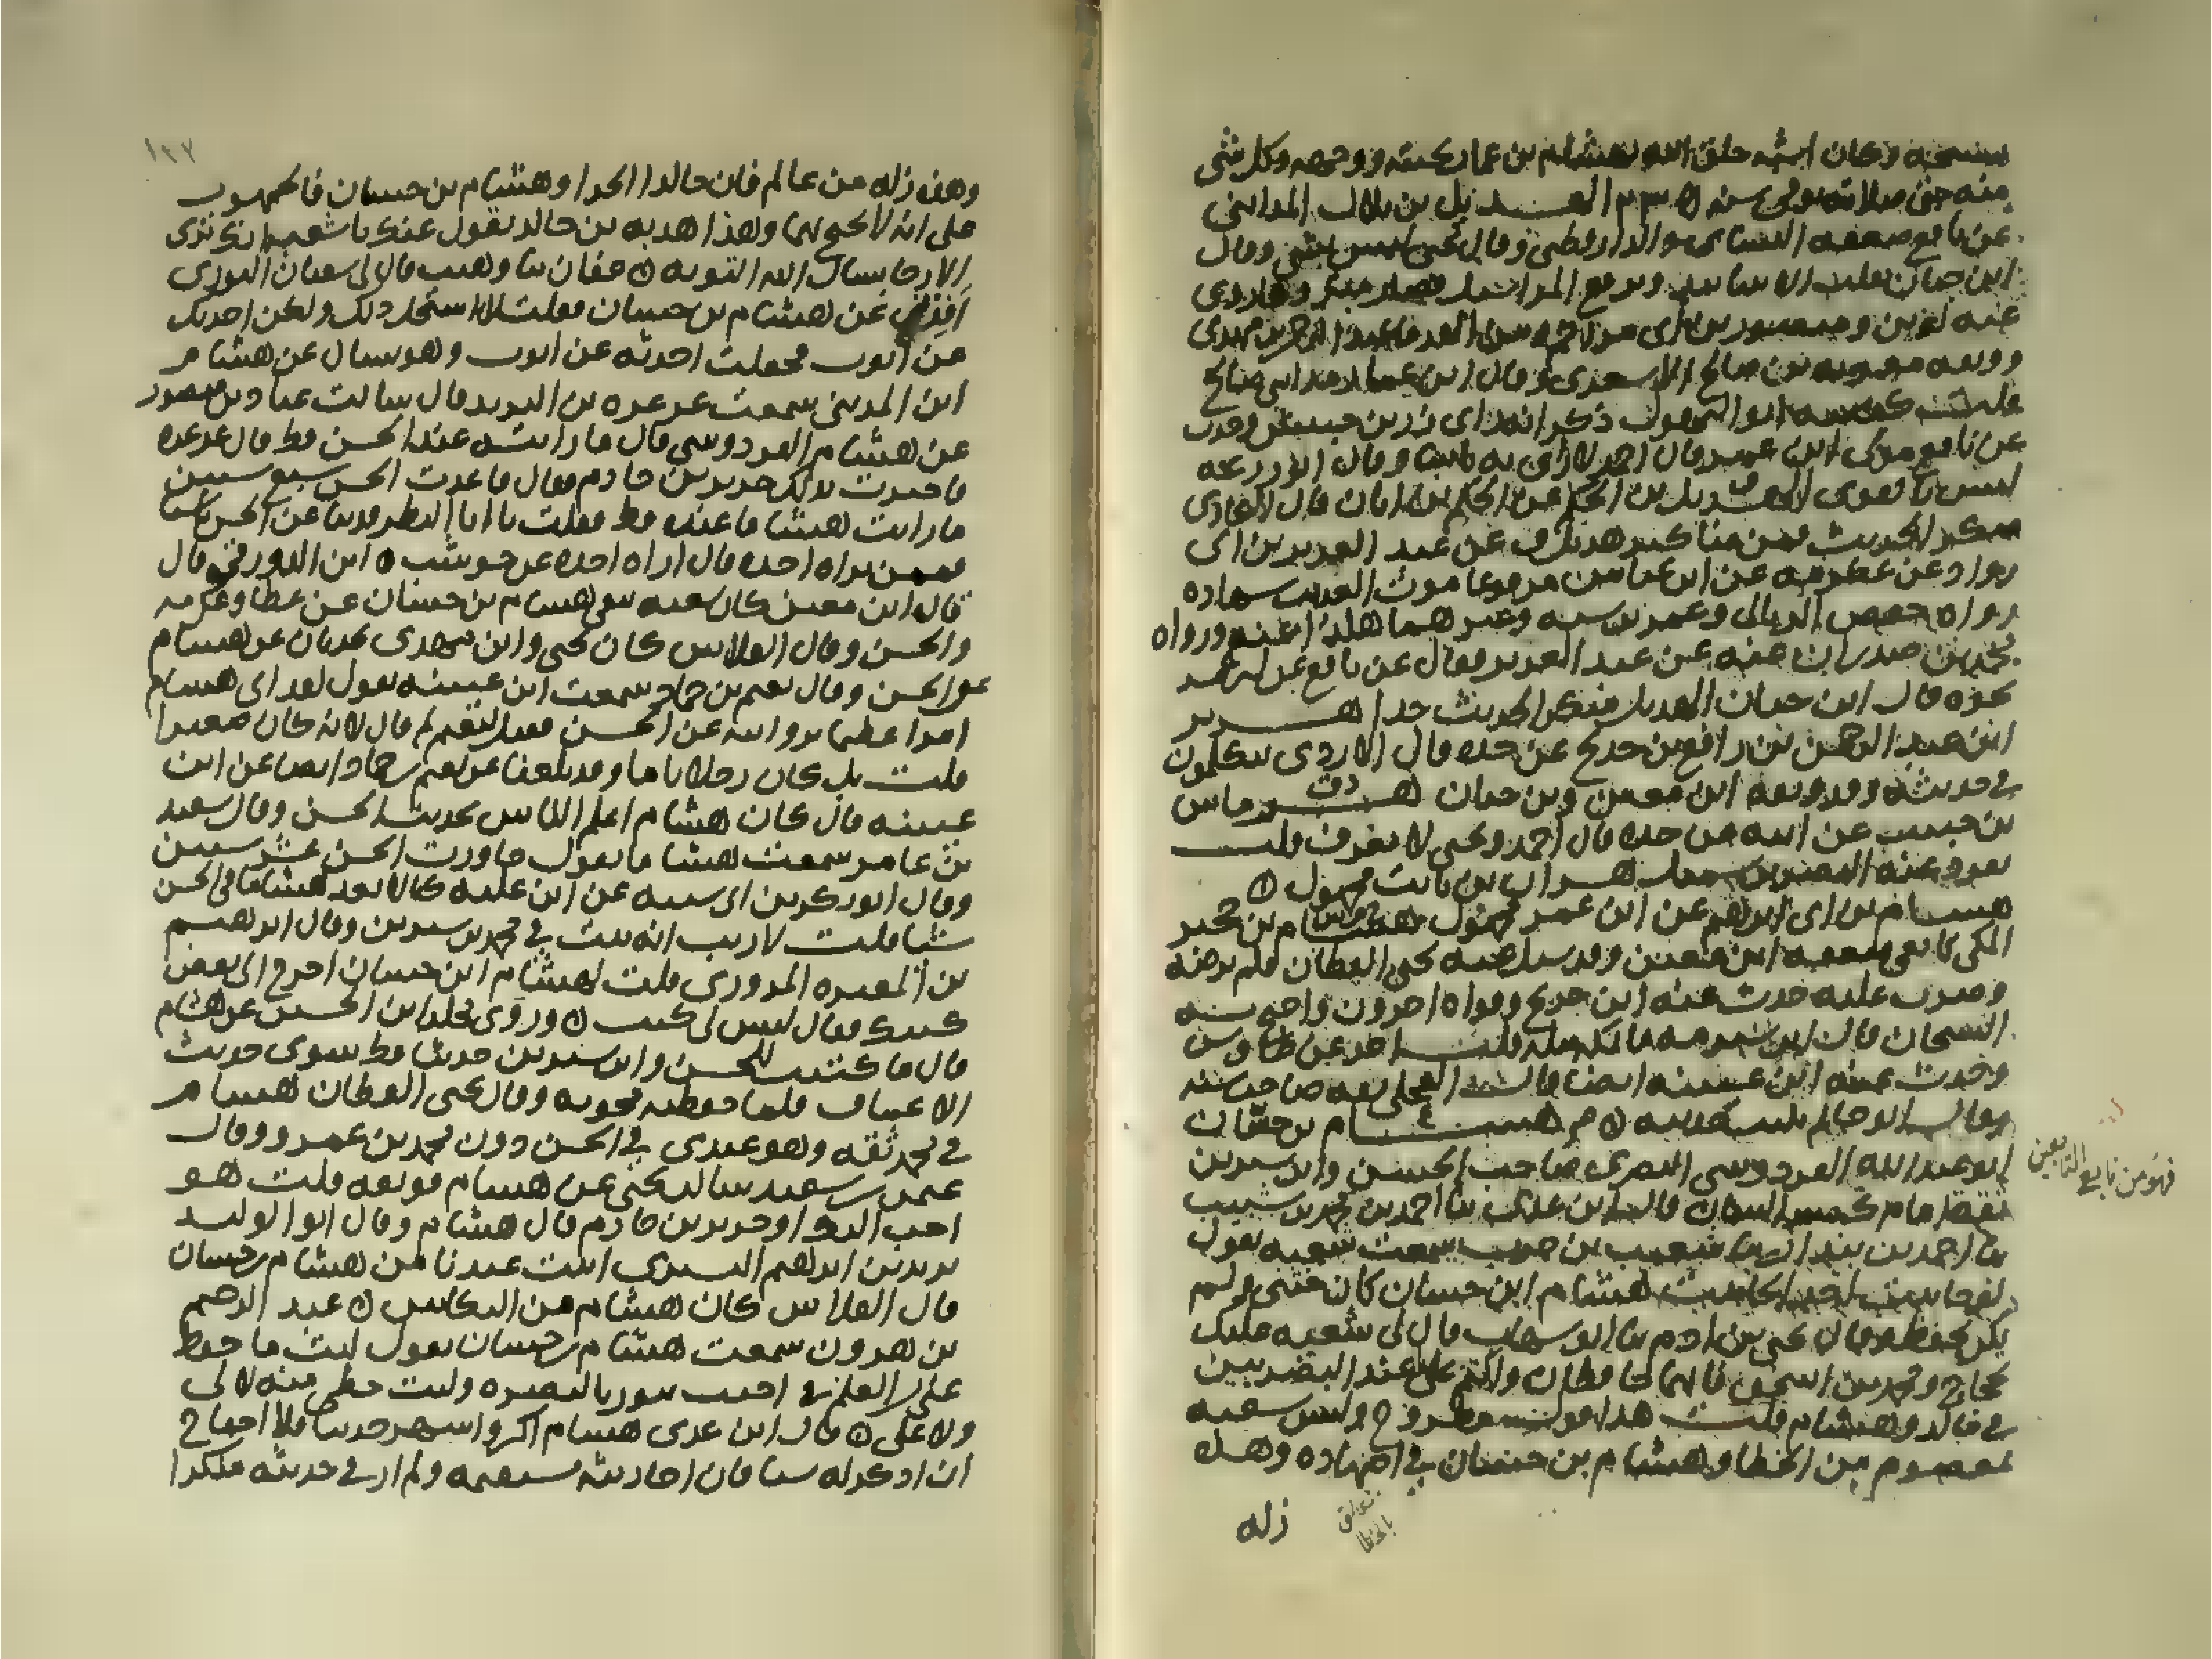 منه حتى صلاته توفي سنة ٥ الهذيل بن بلال المدايني
عن نافع ضعفه النسائي والدارقطني وقال يحيى ليس بشي وقال
ابن حبان يقلب الاسانيد ويرفع المراسيل فصار متروكا روى
عن نافع مولى ابن عمر قال احمد لا ارى به باسا وقال ابو زرعة
ليس بالقوي الهذيل بن الحكم عن الحكم بن ابان قال البخاري
منكر الحديث فمن مناكير هذيل عن عبد العزيز بن ابي
رواد عن عكرمه عن ابن عباس مرفوعا موت الغريب شهاده
رواه حفص الربالي وعمر بن شبه وغيرهما هكذا عنه ورواه
محمد بن صدران عنه عن عبد العزيز فقال عن نافع عن ابن عمر
نحوه قال ابن حبان الهذيل منكر الحديث جدا هرير
ابن عبد الرحمن بن رافع بن خديج عن جده قال الازدي يتكلمون
في حديثه وقد وثقه ابن معين وابن حبان هرماس
بن حبيب عن ابيه عن جده قال احمد ويحيى لا يعرف قلت
تفرد عنه النضر بن شميل هزال بن ثابت مجهول ٥
هشام بن ابي ابراهيم عن ابن عمر مجهول هشام بن حجير
المكي تابعي ضعفه ابن معين وقد سئل عنه يحيى القطان فلم يرضه
وضرب عليه حدث عنه ابن جريج وقواه اخرون واحتج به
الشيخان قال ابن شبرمه ما بمكة مثله قلت اخذ عن طاوس
وحدث عنه ابن عيينه ايضا قال العجلي ثقه صاحب سنه
وقال ابو حاتم يكتب حديثه ٥ هشام بن حسان
ابو عبد الله القردوسي البصري صاحب الحسن وابن سيرين
ثقة امام كبير الشان قال ابن عدي ثنا احمد بن محمد بن شبيب
ثنا احمد بن بندار ثنا شعيب بن حرب سمعت شعبه يقول
لو حابيت احدا لحابيت هشام ابن حسان كان ختني ولم
يكن يحفظ وقال يحيى بن ادم ثنا ابو شهاب قال لي شعبه عليك
بحجاج ومحمد بن اسحق فانهما حافظان واكتم علي عند البصريين
في خالد وهشام قلت هذا قول مطروح وليس شعبه
بمعصوم من الخطا وهشام بن حسان في اجتهاده وهذه
زله
فهو من تابع التابعين
١٣٧
وهذه زله من عالم فان خالدا الحذا وهشام بن حسان فالجمهور
على انه لا يحتج بهما وهذا هدبه بن خالد يقول عنك يا شعبه انك ترى
الارجا نسال الله التوبه ٥ عفان ثنا وهيب قال لي سفيان الثوري
افدني عن هشام بن حسان فقلت لا استحل ذلك ولكن احدثك
عن ايوب فجعلت احدثه عن ايوب وهو يسال عن هشام
ابن المديني سمعت عرعره بن البرند قال سالت عباد بن منصور
عن هشام القردوسي قال ما رايته عند الحسن قط قال عرعره
فاخبرت بذلك جرير بن حازم فقال قاعدت الحسن سبع سنين
ما رايت هشاما عنده قط فقلت يا ابا النضر قد حدثنا عن الحسن باشيا
فعمن تراه اخذه قال اراه اخذه عن حوشب ٥ ابن الدورقي قال
قال ابن معين كان شعبه يتقي هشام بن حسان عن عطا وعكرمه
والحسن وقال الفلاس كان يحيى وابن مهدي يحدثان عن هشام
عن الحسن وقال نعيم بن حماد سمعت ابن عيينه يقول لقد اتى هشام
امرا عظيما بروايته عن الحسن فقيل لنعيم لم قال لانه كان صغيرا
قلت بل كان رجلا تاما وقد بلغنا عن نعيم بن حماد ايضا عن ابن
عيينه قال كان هشام اعلم الناس بحديث الحسن وقال سعيد
بن عامر سمعت هشاما يقول جاورت الحسن عشر سنين
وقال ابو بكر بن ابي شيبه عن ابن عليه كنا لا نعد هشاما في الحسن
شيا قلت لا ريب انه ثبت في محمد بن سيرين وقال ابراهيم
بن المغيره المروزي قلت لهشام ابن حسان اخرج الي بعض
كتبك فقال ليس لي كتب ٥ وروى مخلد ابن الحسين عن هشام
قال ما كتبت للحسن وابن سيرين حديثا قط سوى حديث
الاعماق فلما حفظته محوته وقال يحيى القطان هشام
في محمد ثقه وهو عندي في الحسن دون محمد بن عمرو وقال
عمر بن سعيد سالت يحيى عن هشام فوثقه قلت هو
احب اليك او جرير بن حازم قال هشام وقال ابو الوليد
يزيد بن ابراهيم التستري اثبت عندنا من هشام بن حسان
قال الفلاس كان هشام من البكائين ٥ عبد الرحيم
بن هرون سمعت هشام بن حسان يقول ليت ما حفظ
عني من العلم في اخبث تنور بالبصره وليت حظي منه لا لي
ولا علي ٥ قال ابن عدي هشام اكبر واشهر حديثا فلا احتاج
ان اذكر له شيا فان احاديثه مستقيمه ولم ار في حديثه منكرا